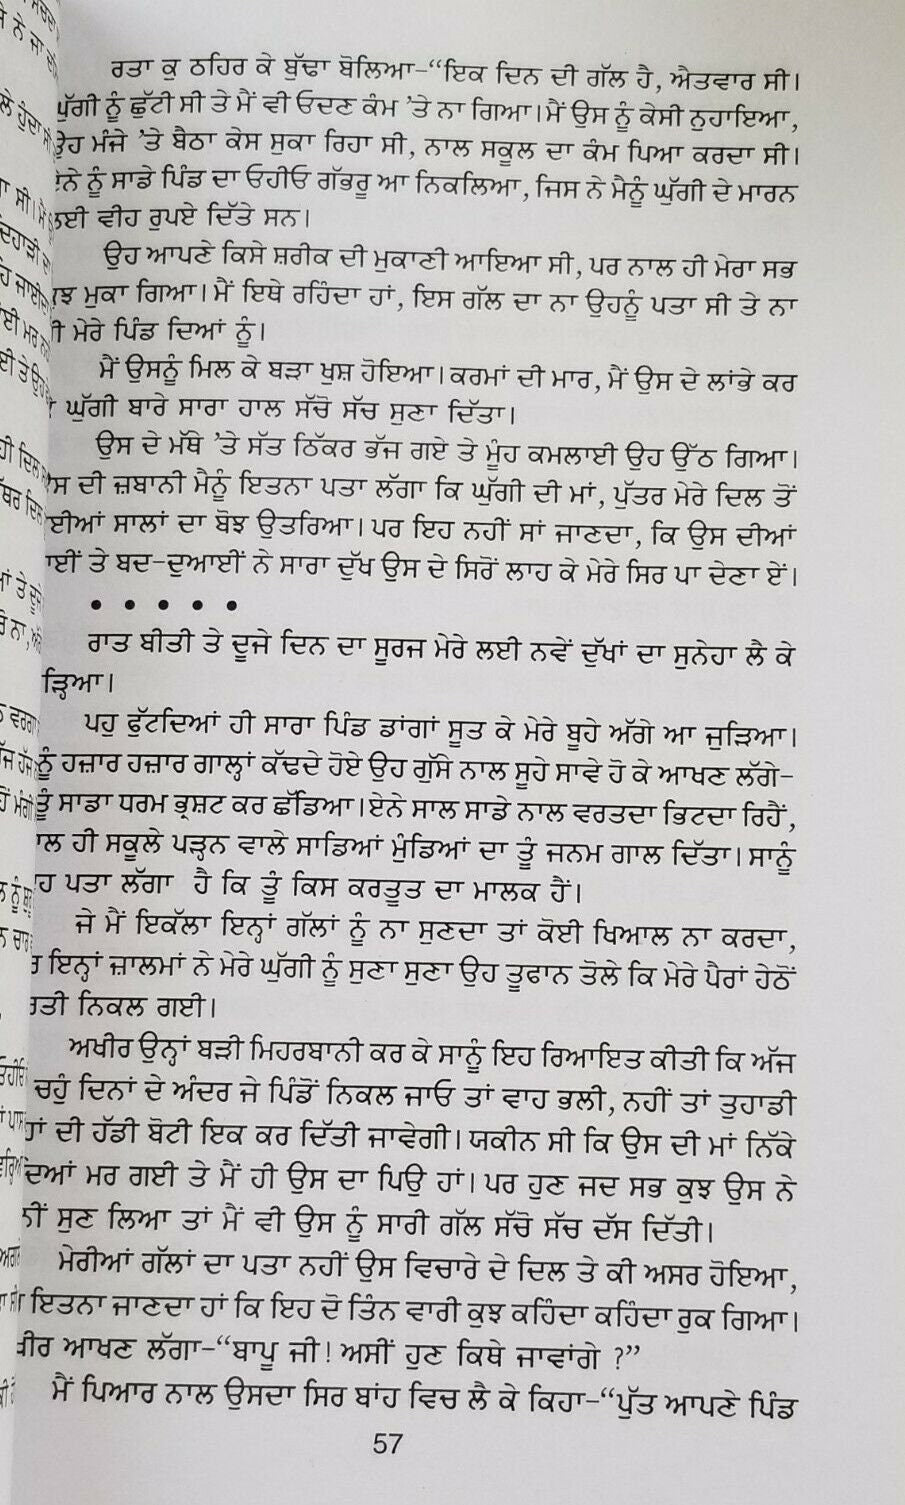 ਰਤਾ ਕੁ ਠਹਿਰ ਕੇ ਬੁੱਢਾ ਬੋਲਿਆ-“ਇਕ ਦਿਨ ਦੀ ਗੱਲ ਹੈ, ਐਤਵਾਰ ਸੀ।
ਘੁੱਗੀ ਨੂੰ ਛੁੱਟੀ ਸੀ ਤੇ ਮੈਂ ਵੀ ਓਦਣ ਕੰਮ ’ਤੇ ਨਾ ਗਿਆ।ਮੈਂ ਉਸ ਨੂੰ ਕੇਸੀ ਨੁਹਾਇਆ,
ਉਹ ਮੰਜੇ ’ਤੇ ਬੈਠਾ ਕੇਸ ਸੁਕਾ ਰਿਹਾ ਸੀ, ਨਾਲ ਸਕੂਲ ਦਾ ਕੰਮ ਪਿਆ ਕਰਦਾ ਸੀ।
ਏਨੇ ਨੂੰ ਸਾਡੇ ਪਿੰਡ ਦਾ ਓਹੀਓ ਗੱਭਰੂ ਆ ਨਿਕਲਿਆ, ਜਿਸ ਨੇ ਮੈਨੂੰ ਘੁੱਗੀ ਦੇ ਮਾਰਨ
ਲਈ ਵੀਹ ਰੁਪਏ ਦਿੱਤੇ ਸਨ।
ਉਹ ਆਪਣੇ ਕਿਸੇ ਸ਼ਰੀਕ ਦੀ ਮੁਕਾਣੀ ਆਇਆ ਸੀ, ਪਰ ਨਾਲ ਹੀ ਮੇਰਾ ਸਭ
ਕੁਝ ਮੁਕਾ ਗਿਆ।ਮੈਂ ਇਥੇ ਰਹਿੰਦਾ ਹਾਂ, ਇਸ ਗੱਲ ਦਾ ਨਾ ਉਹਨੂੰ ਪਤਾ ਸੀ ਤੇ ਨਾ
ਮੇਰੇ ਪਿੰਡ ਦਿਆਂ ਨੂੰ।
ਮੈਂ ਉਸਨੂੰ ਮਿਲ ਕੇ ਬੜਾ ਖੁਸ਼ ਹੋਇਆ।ਕਰਮਾਂ ਦੀ ਮਾਰ, ਮੈਂ ਉਸ ਦੇ ਲਾਂਭੇ ਕਰ
ਘੁੱਗੀ ਬਾਰੇ ਸਾਰਾ ਹਾਲ ਸੱਚੋ ਸੱਚ ਸੁਣਾ ਦਿੱਤਾ।
ਉਸ ਦੇ ਮੱਥੇ ’ਤੇ ਸੱਤ ਠਿੱਕਰ ਭੱਜ ਗਏ ਤੇ ਮੂੰਹ ਕਮਲਾਈ ਉਹ ਉੱਠ ਗਿਆ।
ਦੀ ਜ਼ਬਾਨੀ ਮੈਨੂੰ ਇਤਨਾ ਪਤਾ ਲੱਗਾ ਕਿ ਘੁੱਗੀ ਦੀ ਮਾਂ, ਪੁੱਤਰ ਮੇਰੇ ਦਿਲ ਤੋਂ
ਸਾਲਾਂ ਦਾ ਬੋਝ ਉਤਰਿਆ।ਪਰ ਇਹ ਨਹੀਂ ਸਾਂ ਜਾਣਦਾ, ਕਿ ਉਸ ਦੀਆਂ
ਤੇ ਬਦ-ਦੁਆਈਂ ਨੇ ਸਾਰਾ ਦੁੱਖ ਉਸ ਦੇ ਸਿਰੋਂ ਲਾਹ ਕੇ ਮੇਰੇ ਸਿਰ ਪਾ ਦੇਣਾ ਏਂ।
• • • • •
ਰਾਤ ਬੀਤੀ ਤੇ ਦੂਜੇ ਦਿਨ ਦਾ ਸੂਰਜ ਮੇਰੇ ਲਈ ਨਵੇਂ ਦੁੱਖਾਂ ਦਾ ਸੁਨੇਹਾ ਲੈ ਕੇ
ੜ੍ਹਿਆ।
ਪਹੁ ਫੁੱਟਦਿਆਂ ਹੀ ਸਾਰਾ ਪਿੰਡ ਡਾਂਗਾਂ ਸੂਤ ਕੇ ਮੇਰੇ ਬੂਹੇ ਅੱਗੇ ਆ ਜੁੜਿਆ।
ਨੂੰ ਹਜ਼ਾਰ ਹਜ਼ਾਰ ਗਾਲ੍ਹਾਂ ਕੱਢਦੇ ਹੋਏ ਉਹ ਗੁੱਸੇ ਨਾਲ ਸੂਹੇ ਸਾਵੇ ਹੋ ਕੇ ਆਖਣ ਲੱਗੇ-
ਤੂੰ ਸਾਡਾ ਧਰਮ ਭ੍ਰਸ਼ਟ ਕਰ ਛੱਡਿਆ।ਏਨੇ ਸਾਲ ਸਾਡੇ ਨਾਲ ਵਰਤਦਾ ਭਿਟਦਾ ਰਿਹੈਂ,
ਹੀ ਸਕੂਲੇ ਪੜ੍ਹਨ ਵਾਲੇ ਸਾਡਿਆਂ ਮੁੰਡਿਆਂ ਦਾ ਤੂੰ ਜਨਮ ਗਾਲ ਦਿੱਤਾ।ਸਾਨੂੰ
ਪਤਾ ਲੱਗਾ ਹੈ ਕਿ ਤੂੰ ਕਿਸ ਕਰਤੂਤ ਦਾ ਮਾਲਕ ਹੈਂ।
ਜੇ ਮੈਂ ਇਕੱਲਾ ਇਨ੍ਹਾਂ ਗੱਲਾਂ ਨੂੰ ਨਾ ਸੁਣਦਾ ਤਾਂ ਕੋਈ ਖਿਆਲ ਨਾ ਕਰਦਾ,
ਇਨ੍ਹਾਂ ਜ਼ਾਲਮਾਂ ਨੇ ਮੇਰੇ ਘੁੱਗੀ ਨੂੰ ਸੁਣਾ ਸੁਣਾ ਉਹ ਤੂਫਾਨ ਤੋਲੇ ਕਿ ਮੇਰੇ ਪੈਰਾਂ ਹੇਠੋਂ
ਰਤੀ ਨਿਕਲ ਗਈ।
ਅਖੀਰ ਉਨ੍ਹਾਂ ਬੜੀ ਮਿਹਰਬਾਨੀ ਕਰ ਕੇ ਸਾਨੂੰ ਇਹ ਰਿਆਇਤ ਕੀਤੀ ਕਿ ਅੱਜ
ਚਹੁੰ ਦਿਨਾਂ ਦੇ ਅੰਦਰ ਜੇ ਪਿੰਡੋਂ ਨਿਕਲ ਜਾਓ ਤਾਂ ਵਾਹ ਭਲੀ, ਨਹੀਂ ਤਾਂ ਤੁਹਾਡੀ
ਦੀ ਹੱਡੀ ਬੋਟੀ ਇਕ ਕਰ ਦਿੱਤੀ ਜਾਵੇਗੀ। ਯਕੀਨ ਸੀ ਕਿ ਉਸ ਦੀ ਮਾਂ ਨਿੱਕੇ
ਮਰ ਗਈ ਤੇ ਮੈਂ ਹੀ ਉਸ ਦਾ ਪਿਉ ਹਾਂ। ਪਰ ਹੁਣ ਜਦ ਸਭ ਕੁਝ ਉਸ ਨੇ
ਸੁਣ ਲਿਆ ਤਾਂ ਮੈਂ ਵੀ ਉਸ ਨੂੰ ਸਾਰੀ ਗੱਲ ਸੱਚੋ ਸੱਚ ਦੱਸ ਦਿੱਤੀ।
ਮੇਰੀਆਂ ਗੱਲਾਂ ਦਾ ਪਤਾ ਨਹੀਂ ਉਸ ਵਿਚਾਰੇ ਦੇ ਦਿਲ ਤੇ ਕੀ ਅਸਰ ਹੋਇਆ,
ਇਤਨਾ ਜਾਣਦਾ ਹਾਂ ਕਿ ਇਹ ਦੋ ਤਿੰਨ ਵਾਰੀ ਕੁਝ ਕਹਿੰਦਾ ਕਹਿੰਦਾ ਰੁਕ ਗਿਆ।
ਆਖਣ ਲੱਗਾ-“ਬਾਪੂ ਜੀ! ਅਸੀਂ ਹੁਣ ਕਿਥੇ ਜਾਵਾਂਗੇ ?”
ਮੈਂ ਪਿਆਰ ਨਾਲ ਉਸਦਾ ਸਿਰ ਬਾਂਹ ਵਿਚ ਲੈ ਕੇ ਕਿਹਾ-“ਪੁੱਤ ਆਪਣੇ ਪਿੰਡ
57